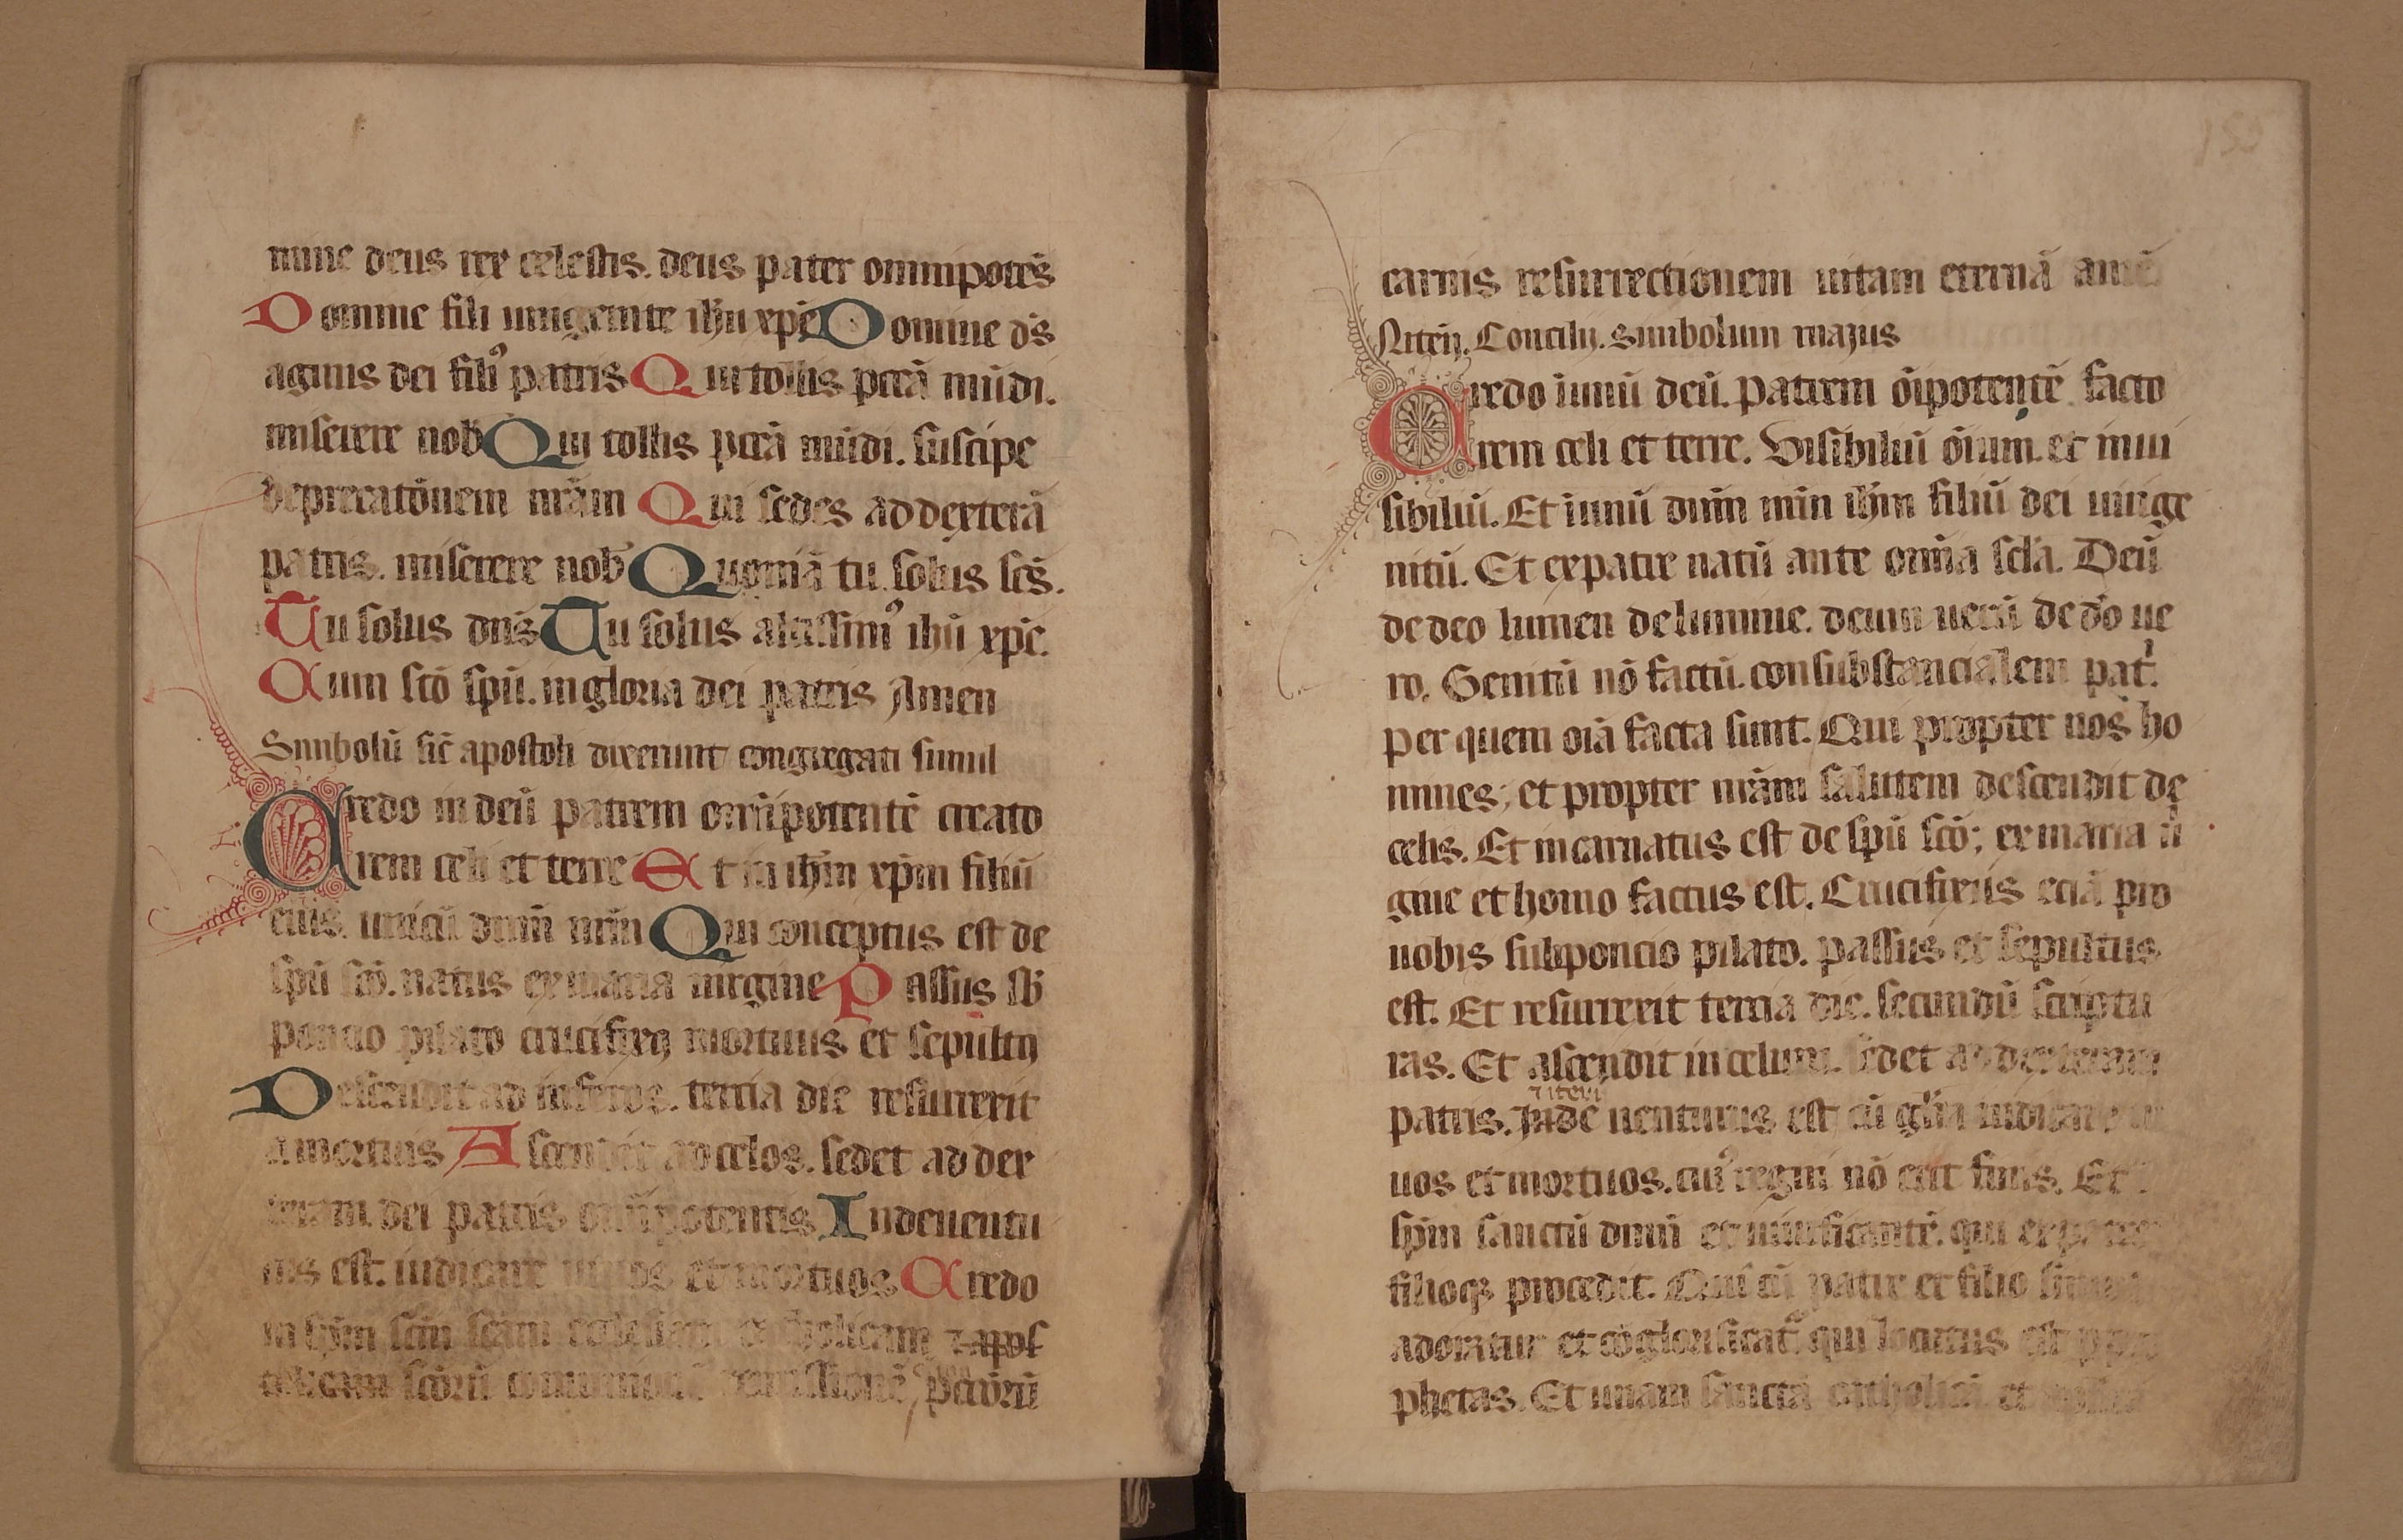 mine deus rex celestis. deus pater omnipotēs
Domine fili unigenite ih̄u xp̄e Domine ds̄
agnus dei filiꝰ patris Qui tollis pccā mūdi.
miserere nob̄ Qui tollis pccā mūdi. suscipe
deprecatōnem nr̄am Qui sedes ad dexterā
patris. miserere nob̄ Quoniā tu solus scs̄.
Tu solus dn̄s Tu solus altissimꝰ ih̄u xp̄e.
Cum scō sp̄u. in gloria dei patris Amen
Simbolū sic̄ apostoli dixerunt congregati simul
Credo in deū patrem om̄ipotentē creato
rem celi et terre Et in ih̄m xp̄m filiū
eius. unicū dn̄m nr̄m Qui conceptus est de
sp̄u scō. natus ex maria uirgine Passus sb̄
poncio pilato crucifixꝰ mortuus et sepultꝰ
Descendit ad inferos. tercia die resurrexit
a mortuis Ascendit ad celos. sedet ad dex
teram dei patris om̄ipotentis Inde uentu
rus est. iudicare uiuos et mortuos Credo
in sp̄m scm̄ scām ecclesiam catholicam ⁊ apos
tolicam scōrū communionē remissionē pccōrū
155
carnis resurrectionem uitam eternā amē
Nicen̄. Concilij. simbolum majus
Credo ī unū deū. patrem ōipotentē facto
rem celi et terre. Visibiliū ōium. et inui
sibiliū. Et ī unū dn̄m nr̄m ih̄m filiū dei unige
nitū. Et ex patre natū ante omīa scl̄a. Deū
de deo lumen de lumine. deum uerū de dō ue
ro. Genitū nō factū. consubstancialem pat'.
per quem oīa facta sunt. Qui propter nos ho
mines; et propter nr̄am salutem descendit de
celis. Et incarnatus est de sp̄u scō; ex maria ū
gine et homo factus est. Crucifixus eciā pro
nobis sub poncio pilato. passus et sepultus
est. Et resurrexit tercia die. secundū scriptu
ras. Et ascendit in celum. sedet ad dexteram
⁊ iteꝝ
patris. Inde uenturus est cū glīa iudicare ui
uos et mortuos. cuiꝰ regni nō erit finis. Et ī
sp̄m sanctū dn̄m et uiuificantē. qui ex patre
filioqꝫ procedit. Qui cū patre et filio simul
adoratur et cōglorificat᷑ qui locutus est p pro
phetas. Et unam sanctā catholicā et